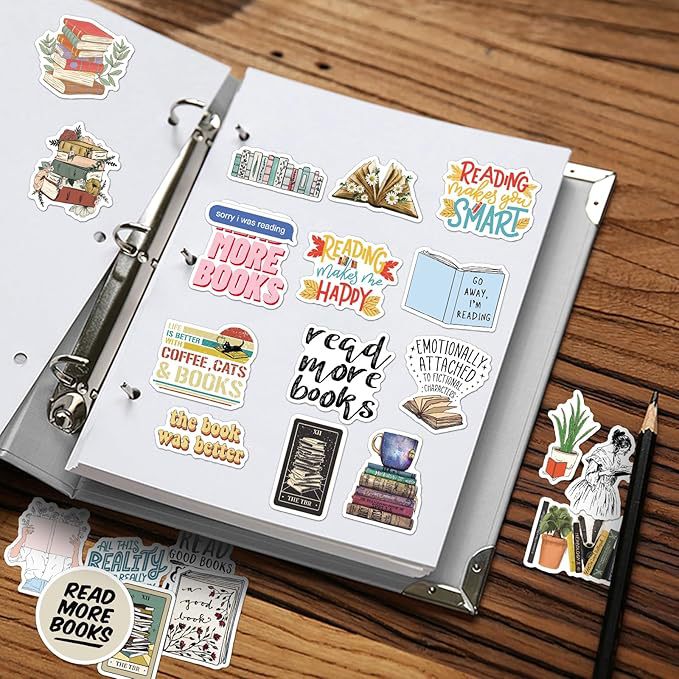 READING
makes you
SMART
sorry I was reading
READ
MORE
BOOKS
READING
makes me
HAPPY
GO
AWAY,
I'M
READING
LIFE
IS BETTER
WITH
COFFEE, CATS
& BOOKS
read
more
books
EMOTIONALLY
ATTACHED
TO FICTIONAL
CHARACTERS
the book
was better
XII
THE TBR
ALL THIS
REALITY
REALLY
READ
GOOD BOOKS
a good
book
READ
MORE
BOOKS
XII
THE TBR